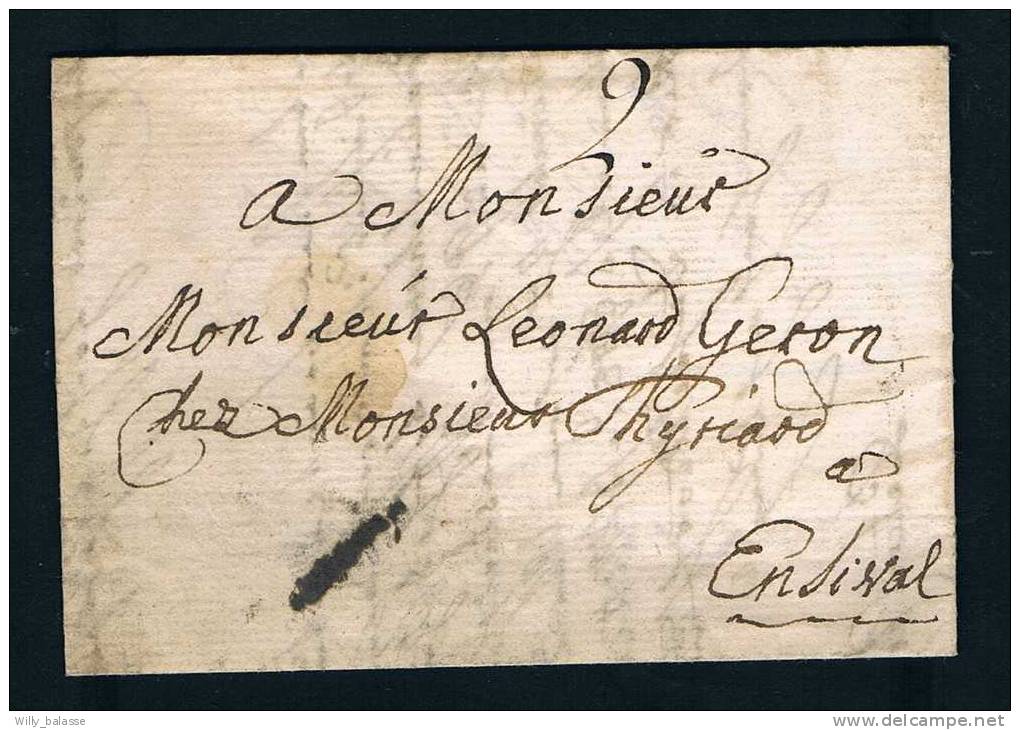 2
a Monsieur
Monsieur Leonard Geron
Chez Monsieur Thyriard
a
Ensival
Willy_balasse
delcampe.net